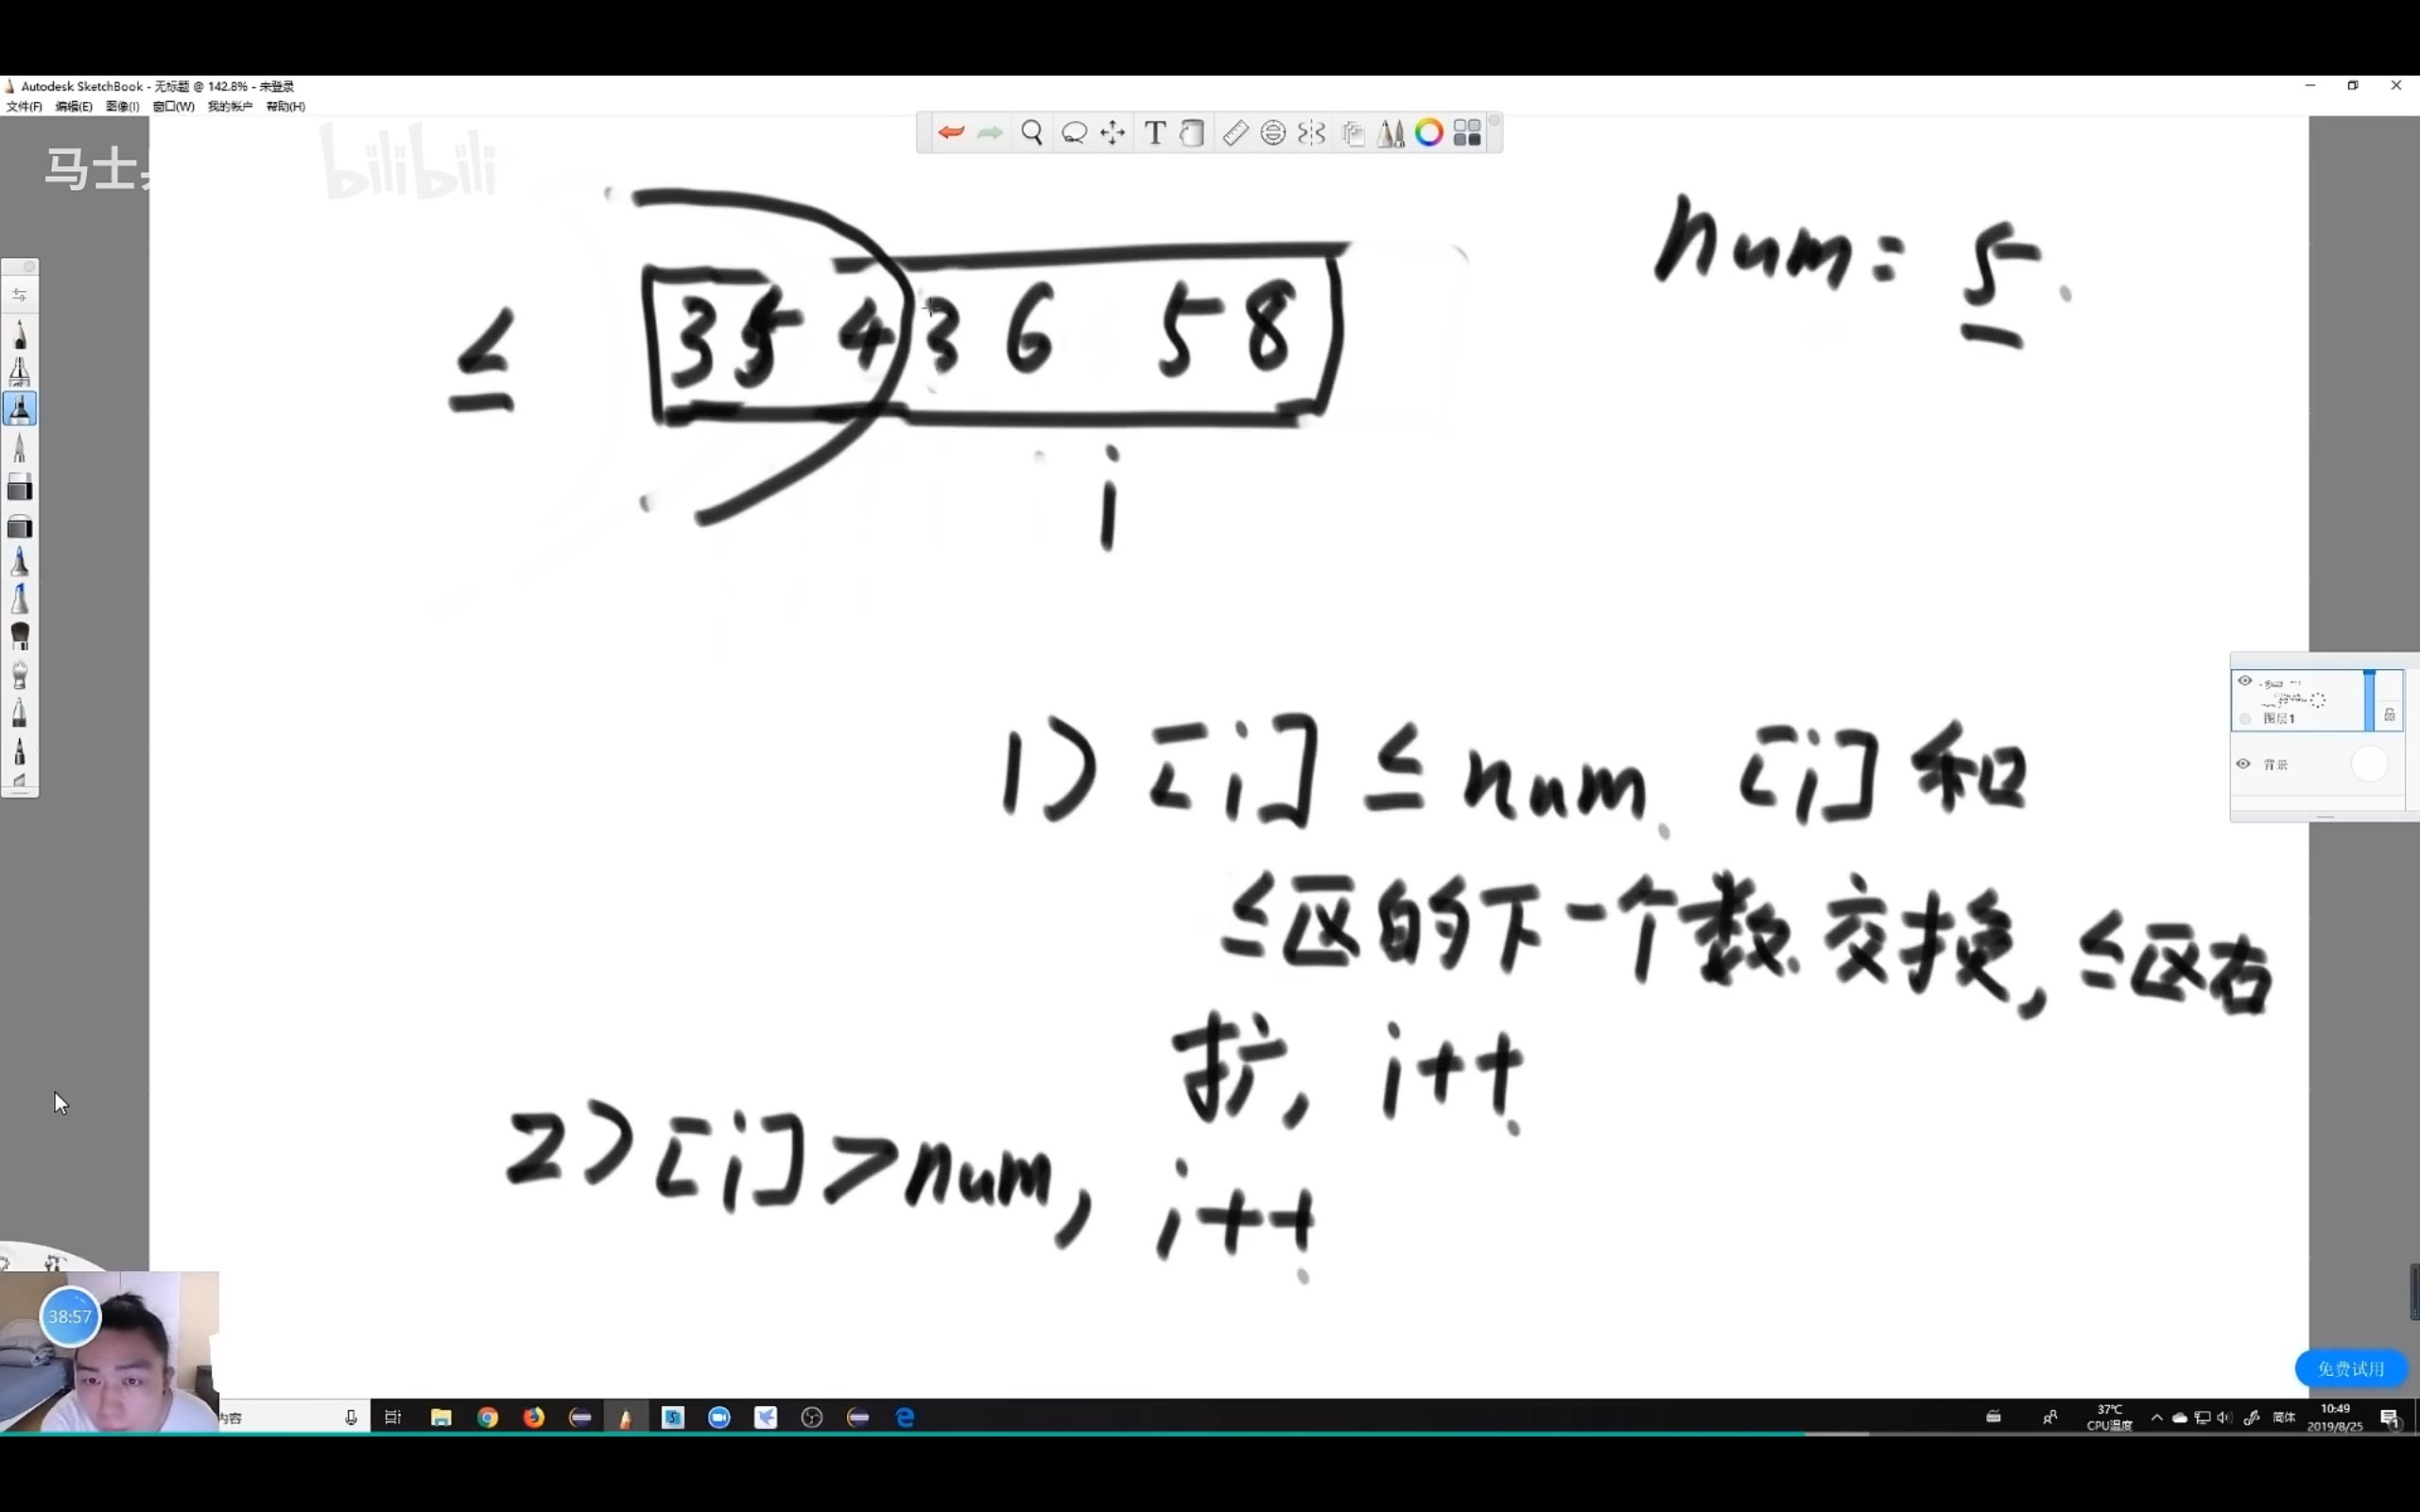 Autodesk SketchBook - 无标题 @ 142.8% - 未登录
文件(F) 编辑(E) 图像(I) 窗口(W) 我的帐户 帮助(H)
马士
bilibili
num = 5
≤ 3 5 4 3 6 5 8
i
1) [i] ≤ num [i] 和
≤区的下一个数交换, ≤区右
扩, i++
2) [i] > num, i++
图层1
背景
38:57
免费试用
内容
37℃
CPU温度
简体
10:49
2019/8/25
1